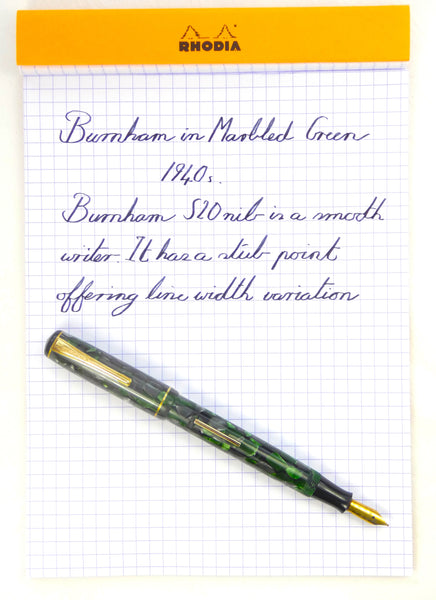 RHODIA
Burnham in Marbled Green
1940s.
Burnham S20 nib is a smooth
writer. It has a stub point
offering line width variation